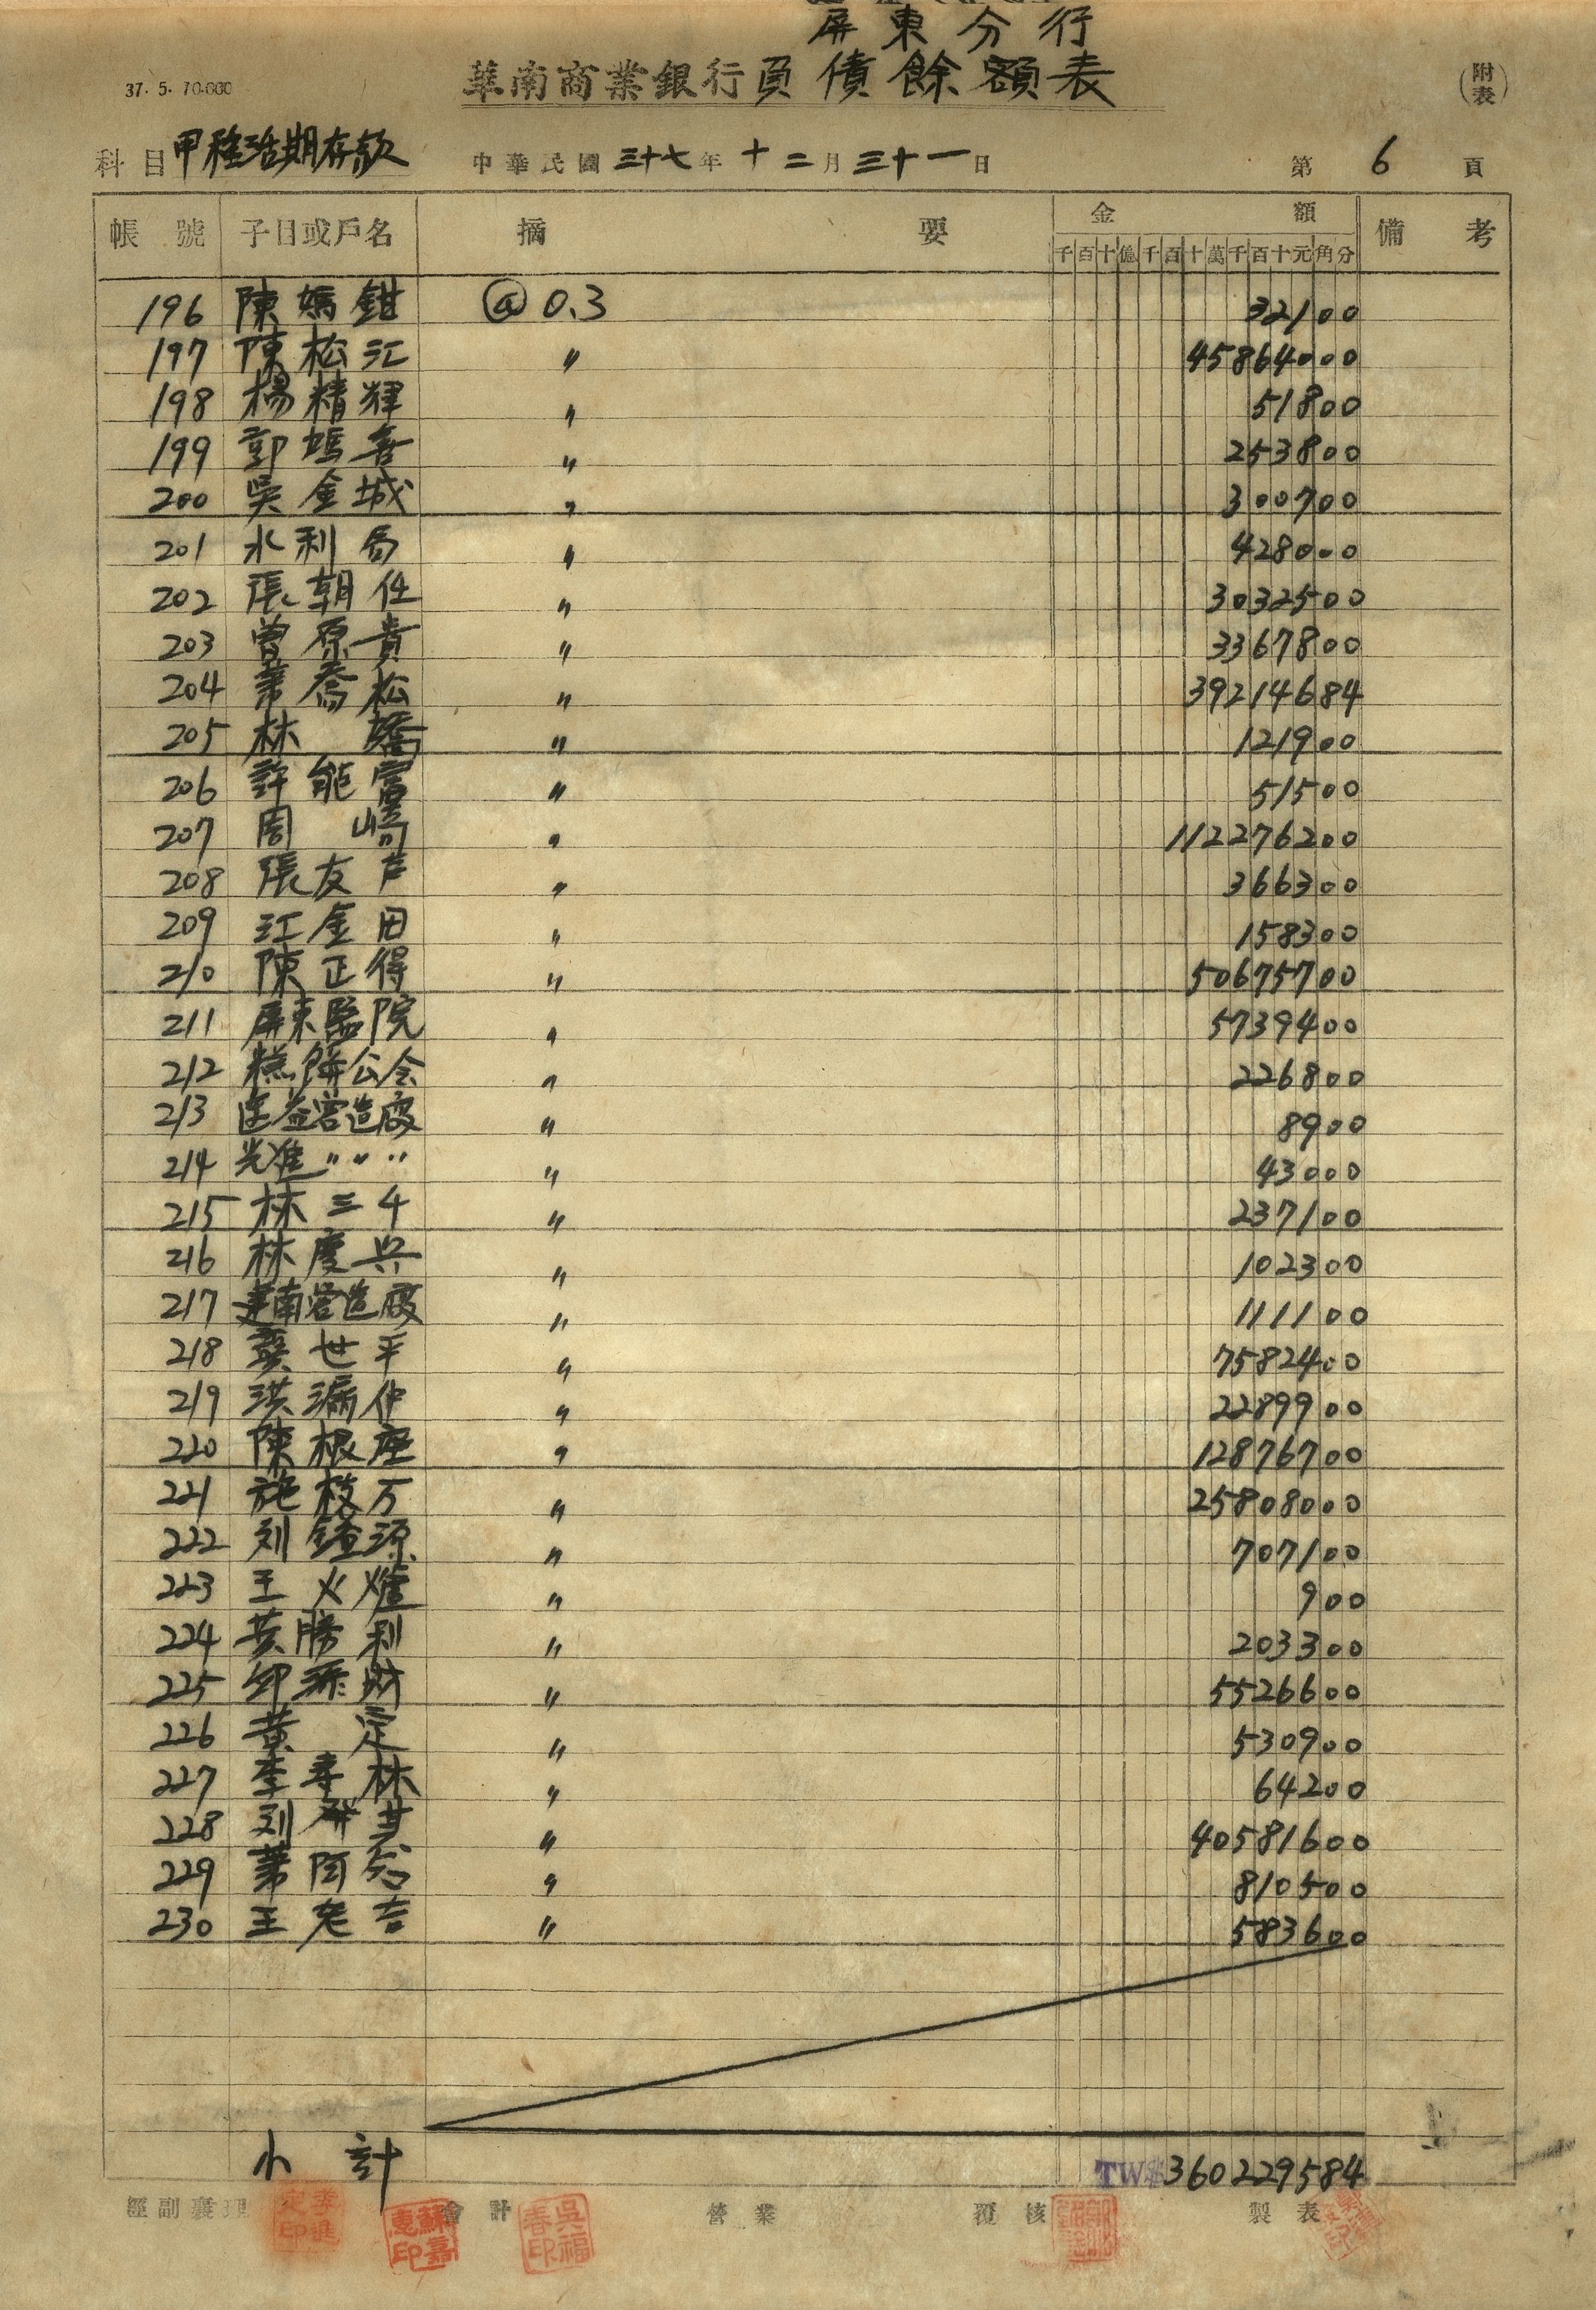 屏東分行
37. 5. 70.000
華南商業銀行負債餘額表
(附表)
科目 甲種活期存款 中華民國三十七年十二月三十一日 第 6 頁
帳號 子目或戶名 摘要 金額 備考
千百十億千百十萬千百十元角分
196 陳媽鉗 @ 0.3 32100
197 陳松江 〃 45864000
198 楊精輝 〃 51800
199 郭媽喜 〃 253800
200 吳金城 〃 300700
201 水利局 〃 428000
202 張朝任 〃 3032500
203 曾原貴 〃 3367800
204 葉喬松 〃 39214684
205 林 〃 121900
206 許能富 〃 51500
207 周 〃 112276200
208 張友芦 〃 366300
209 江金田 〃 158300
210 陳正得 〃 50675700
211 屏東監院 〃 5739400
212 糕餅公会 〃 226800
213 益營造廠 〃 8900
214 光進〃〃〃 〃 43000
215 林三千 〃 237100
216 林慶兴 〃 102300
217 建南營造廠 〃 111100
218 世平 〃 7582400
219 洪漏仲 〃 2289900
220 陳根座 〃 12876700
221 施枝万 〃 25808000
222 刘鐘源 〃 707100
223 王火爐 〃 900
224 黃勝利 〃 203300
225 邱添財 〃 5526600
226 黃定 〃 530900
227 李寿林 〃 64200
228 刘 〃 40581600
229 葉阿 〃 810500
230 王老吉 〃 583600
小計 TW$360229584
經副襄理 會計 營業 覆核 製表
李進定印
蘇嘉惠印
吳福春印